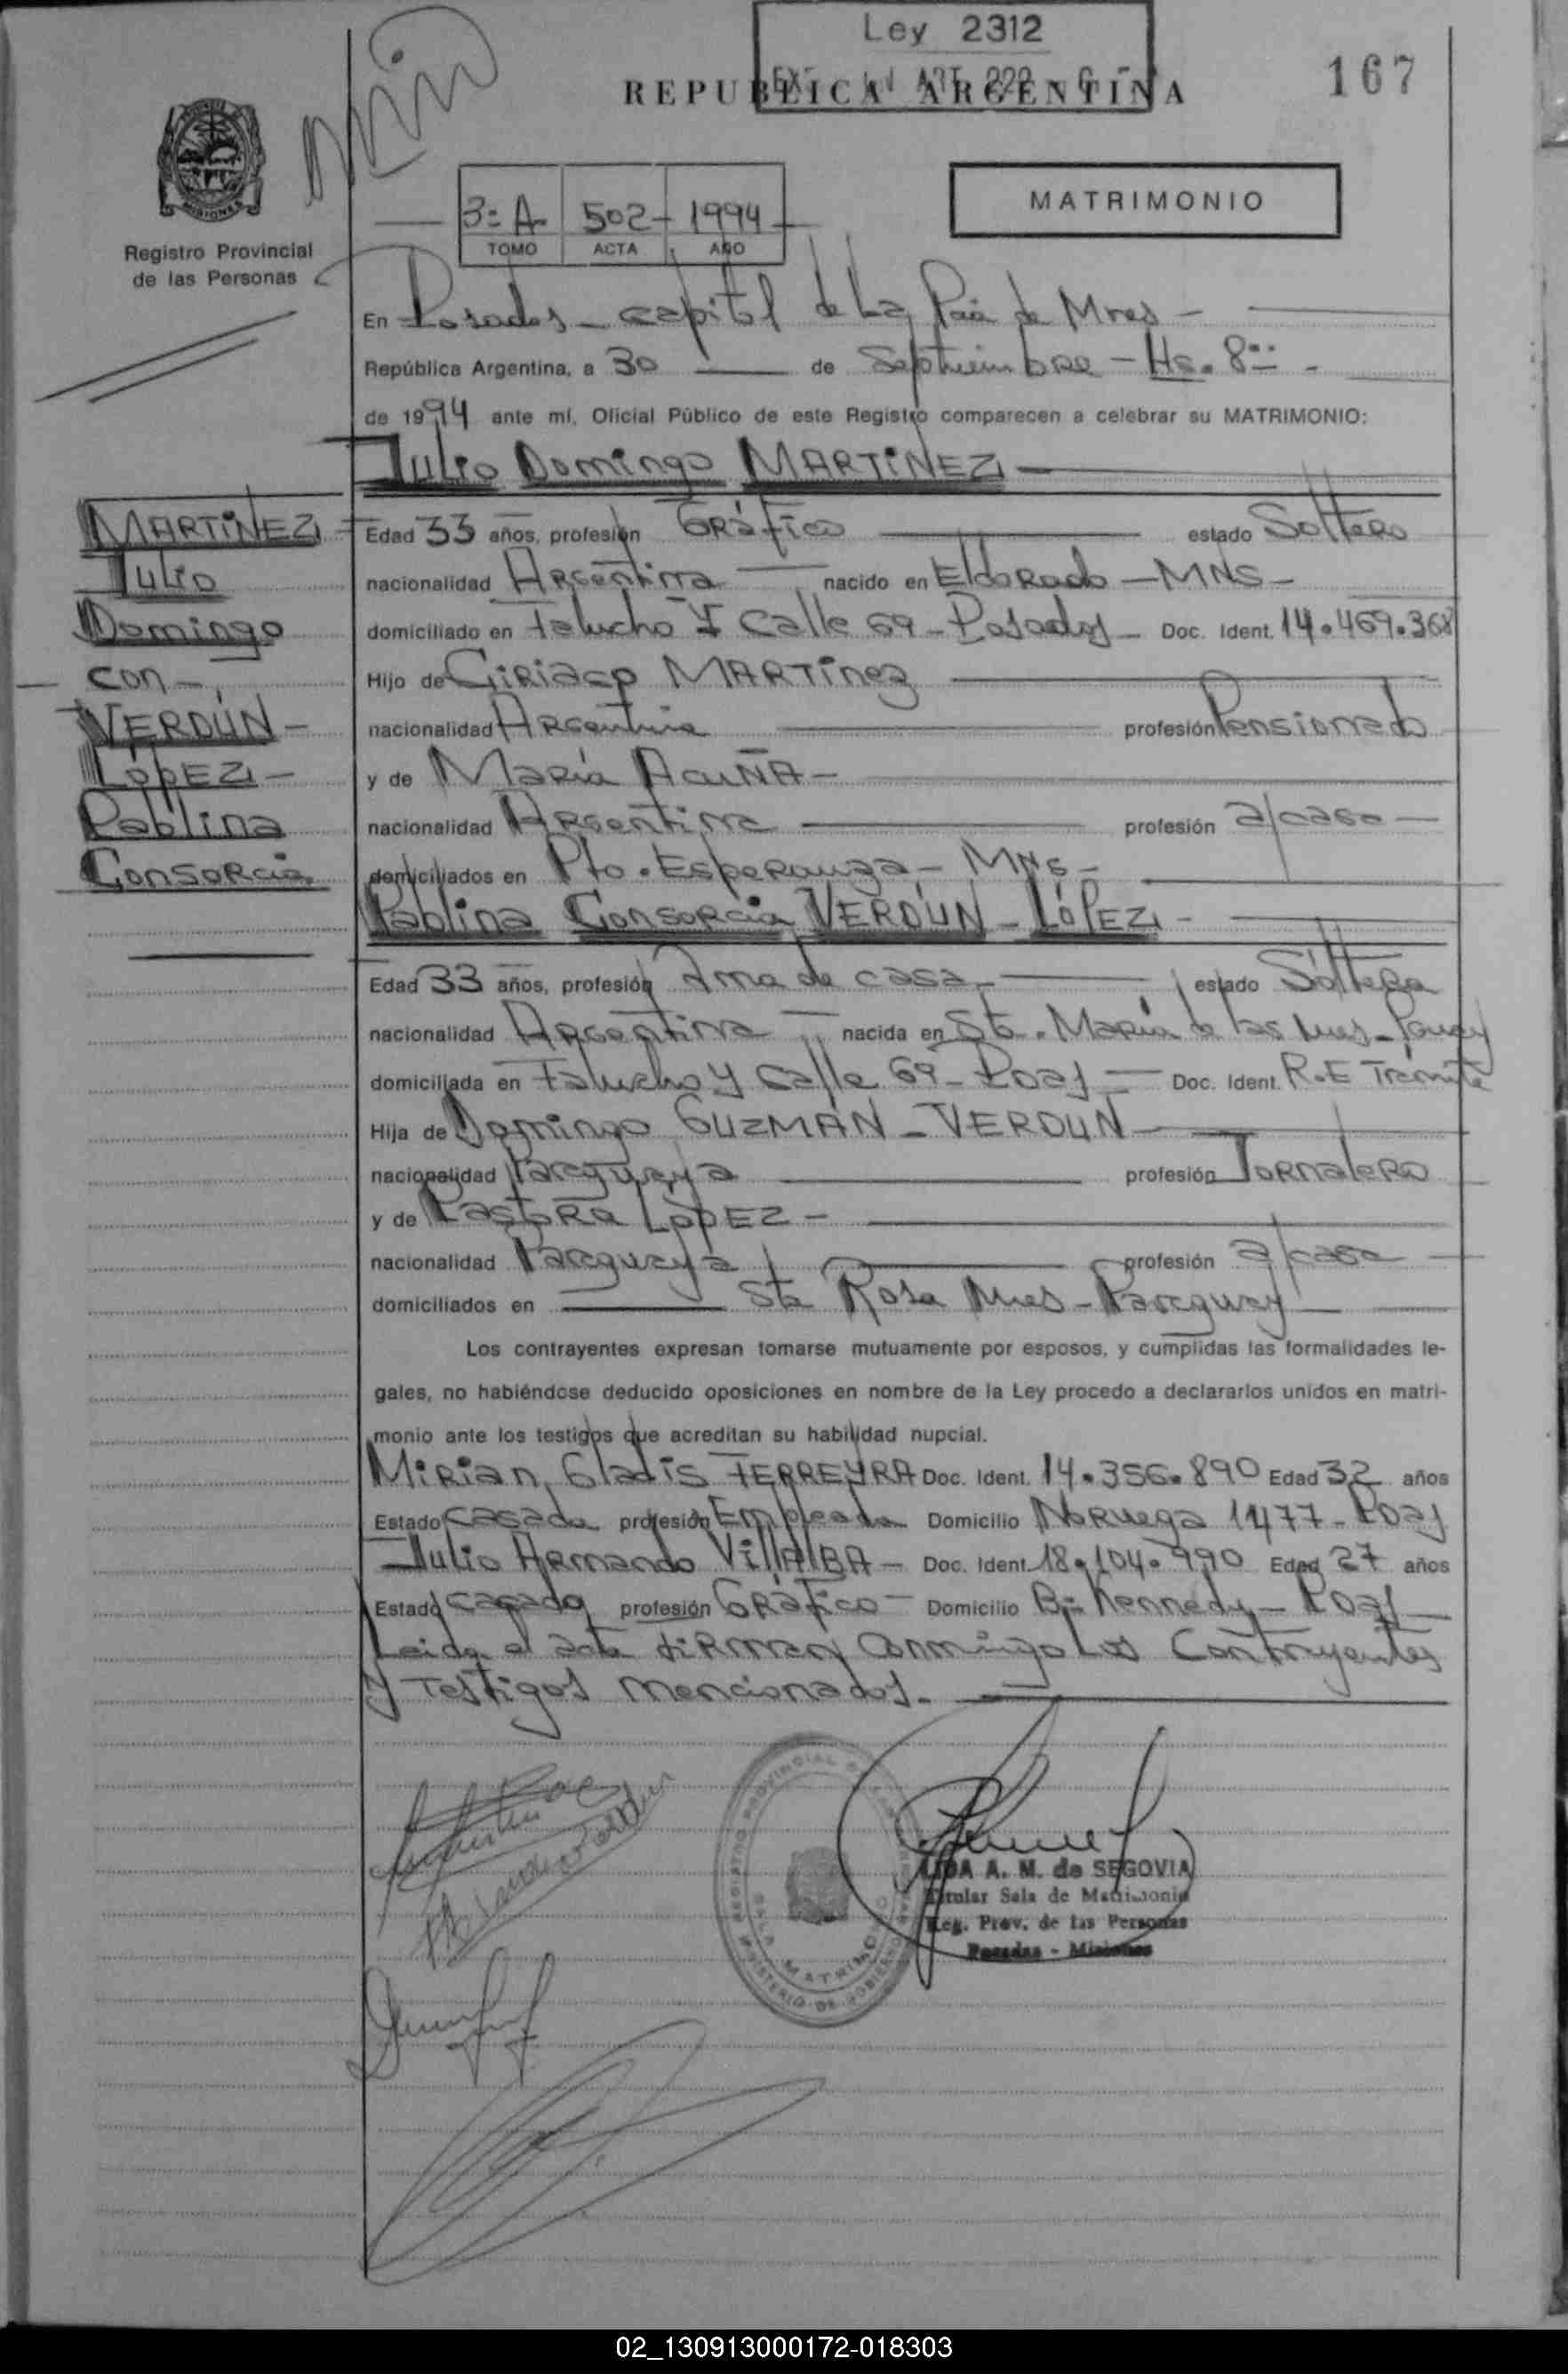 Ley 2312
REPUBLICA ARGENTINA
167
MISIONES
Registro Provincial
de las Personas
3º A 502 - 1994
TOMO ACTA AÑO
MATRIMONIO
En Posadas - capital de la Pcia de Mnes -
República Argentina, a 30 de Septiembre - Hs. 8
de 1994 ante mí, Oficial Público de este Registro comparecen a celebrar su MATRIMONIO:
Julio Domingo MARTINEZ
MARTINEZ
Julio
Domingo
con -
VERDÚN -
LÓPEZ -
Pablina
Consorcia
Edad 33 años, profesión Gráfico estado Soltero
nacionalidad Argentina nacido en Eldorado - MNS -
domiciliado en Falucho y Calle 69 - Posadas - Doc. Ident. 14.469.368
Hijo de Ciriaco MARTínez
nacionalidad Argentina profesión Pensionado
y de María ACUÑA -
nacionalidad Argentina profesión a/casa -
domiciliados en Pto. Esperanza - MNS -
Pablina Consorcia VERDÚN - LÓPEZ -
Edad 33 años, profesión Ama de casa - estado Soltera
nacionalidad Argentina nacida en Sta. María de las Mnes - Paguay
domiciliada en Falucho y Calle 69 - Pdas - Doc. Ident. R.E Trámite
Hija de Domingo GUZMÁN - VERDÚN
nacionalidad Paraguaya profesión Jornalero
y de Pastora LÓPEZ -
nacionalidad Paraguaya profesión a/casa
domiciliados en Sta Rosa Mnes - Paraguay
Los contrayentes expresan tomarse mutuamente por esposos, y cumplidas las formalidades le-
gales, no habiéndose deducido oposiciones en nombre de la Ley procedo a declararlos unidos en matri-
monio ante los testigos que acreditan su habilidad nupcial.
Mirian Gladis FERREYRA Doc. Ident. 14.356.890 Edad 32 años
Estado Casada profesión Empleada Domicilio Noruega 1477 - Pdas
Julio Armando VillALBA - Doc. Ident. 18.104.990 Edad 27 años
Estado casado profesión Gráfico - Domicilio Bº Kennedy - Pdas
Leida el acta firman conmigo los Contrayentes
y Testigos mencionados.
LIDA A. M. de SEGOVIA
Titular Sala de Matrimonio
Reg. Prov. de las Personas
Posadas - Misiones
02_130913000172-018303